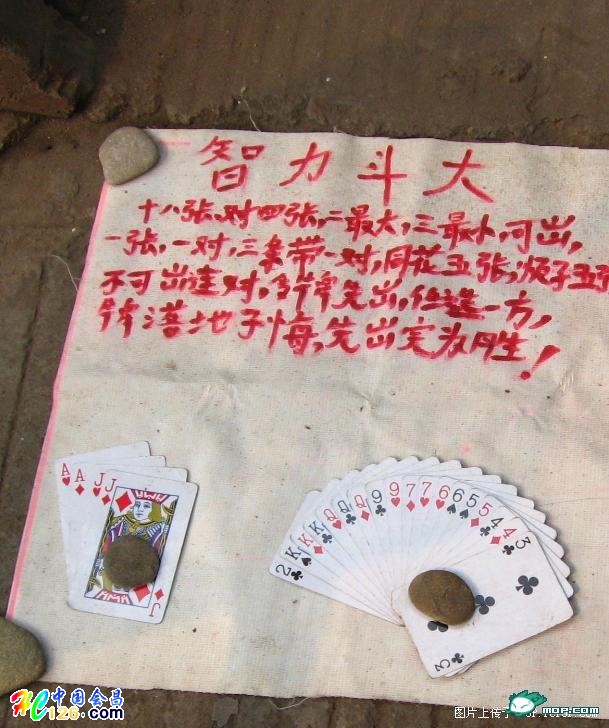 智力斗大
十八张、对四张,二最大,三最小,可出,
一张,一对,三条带一对,同花五张,顺子五
不可出连对,多牌先出,任选一方,
牌落地不悔,先出完为胜!
A A J J J
2 K K K Q Q Q 9 9 7 7 6 6 5 5 4 4 3
3
HC 中国会昌
126.com
图片上传于
MOP.COM